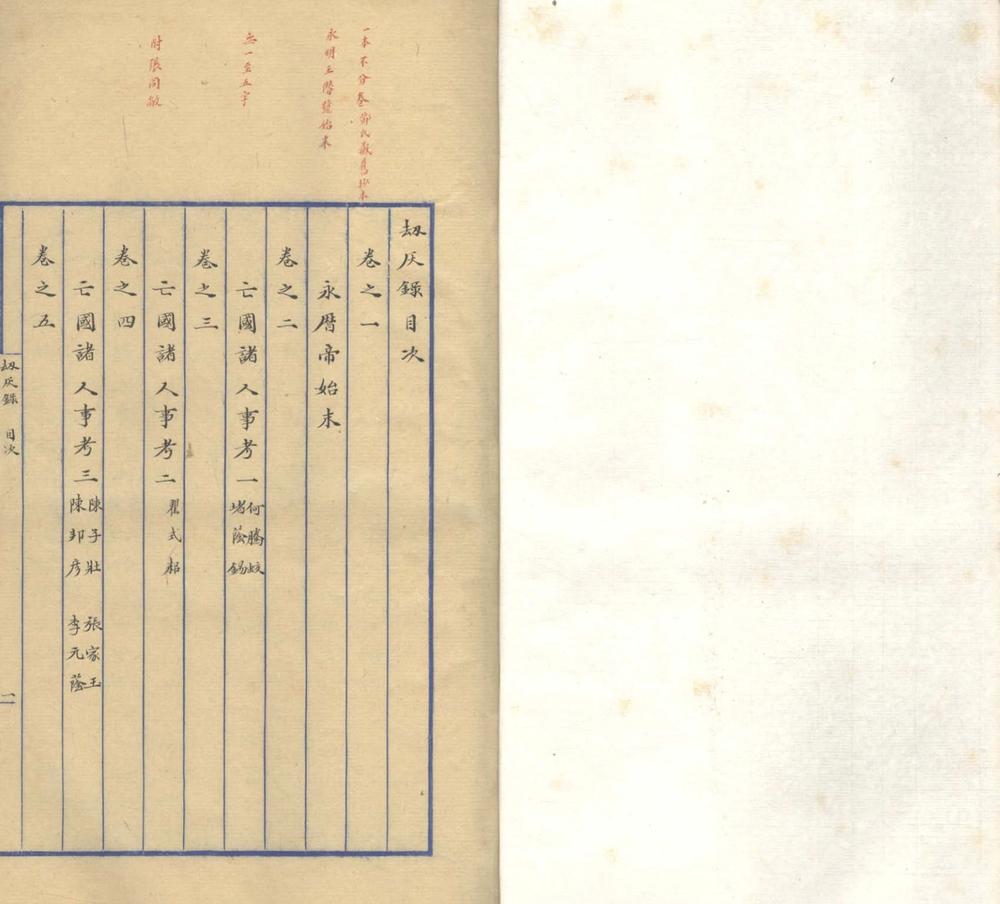 一本不分卷鄧氏藏舊抄本
永明王僭號始末
無一至五字
附張同敞
刧灰錄目次
卷之一
永曆帝始末
卷之二
亡國諸人事考一 何騰蛟 堵蔭錫
卷之三
亡國諸人事考二 瞿式耜
卷之四
亡國諸人事考三 陳子壯 張家玉 陳邦彥 李元蔭
卷之五
刧灰錄 目次 一